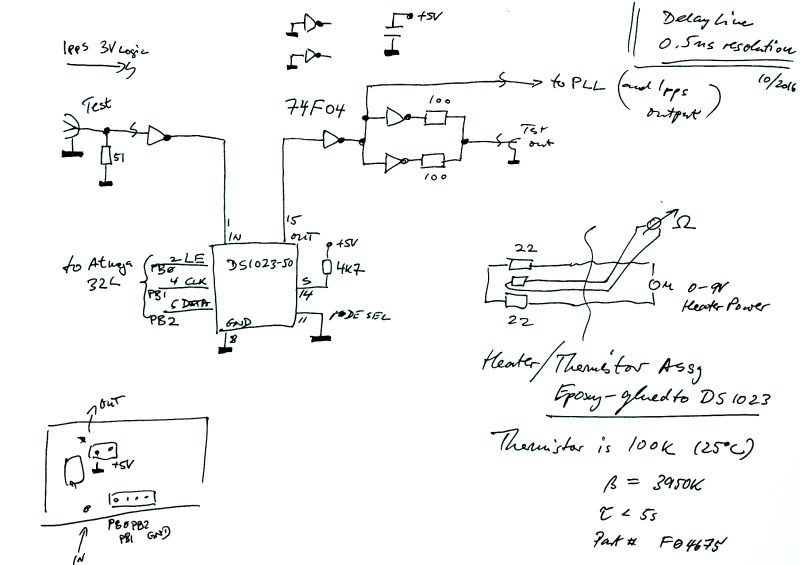 Delay Line
0.5ns resolution
10/2016
+5V
1pps 3V Logic
to PLL (and 1pps
output)
Test
74F04
100
51
Test
out
100
1
15
IN
OUT
+5V
DS1023-50
4K7
to Atmega
32L
2 LE
PB0
4 CLK
PB1
6 DATA
PB2
5
14
11
MODE SEL
GND
8
22
Ω
0-9V
Heater Power
22
Heater/Thermistor Assy
Epoxy-glued to DS1023
Thermistor is 100K (25°C)
β = 3950K
τ < 5s
Part # F04675
OUT
+5V
PB0 PB2
PB1 GND
IN